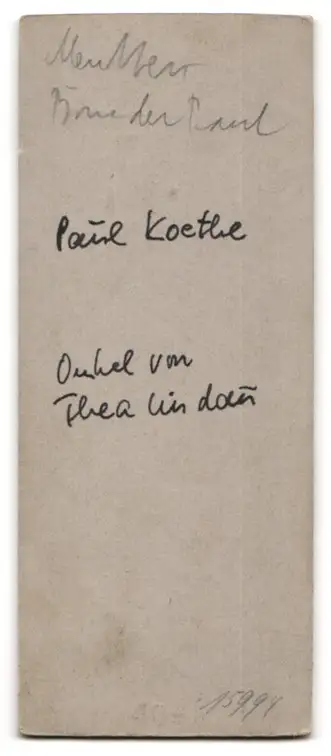 Mutters
Bruder Paul
Paul Koethe
Onkel von
Thea Lindau
15994